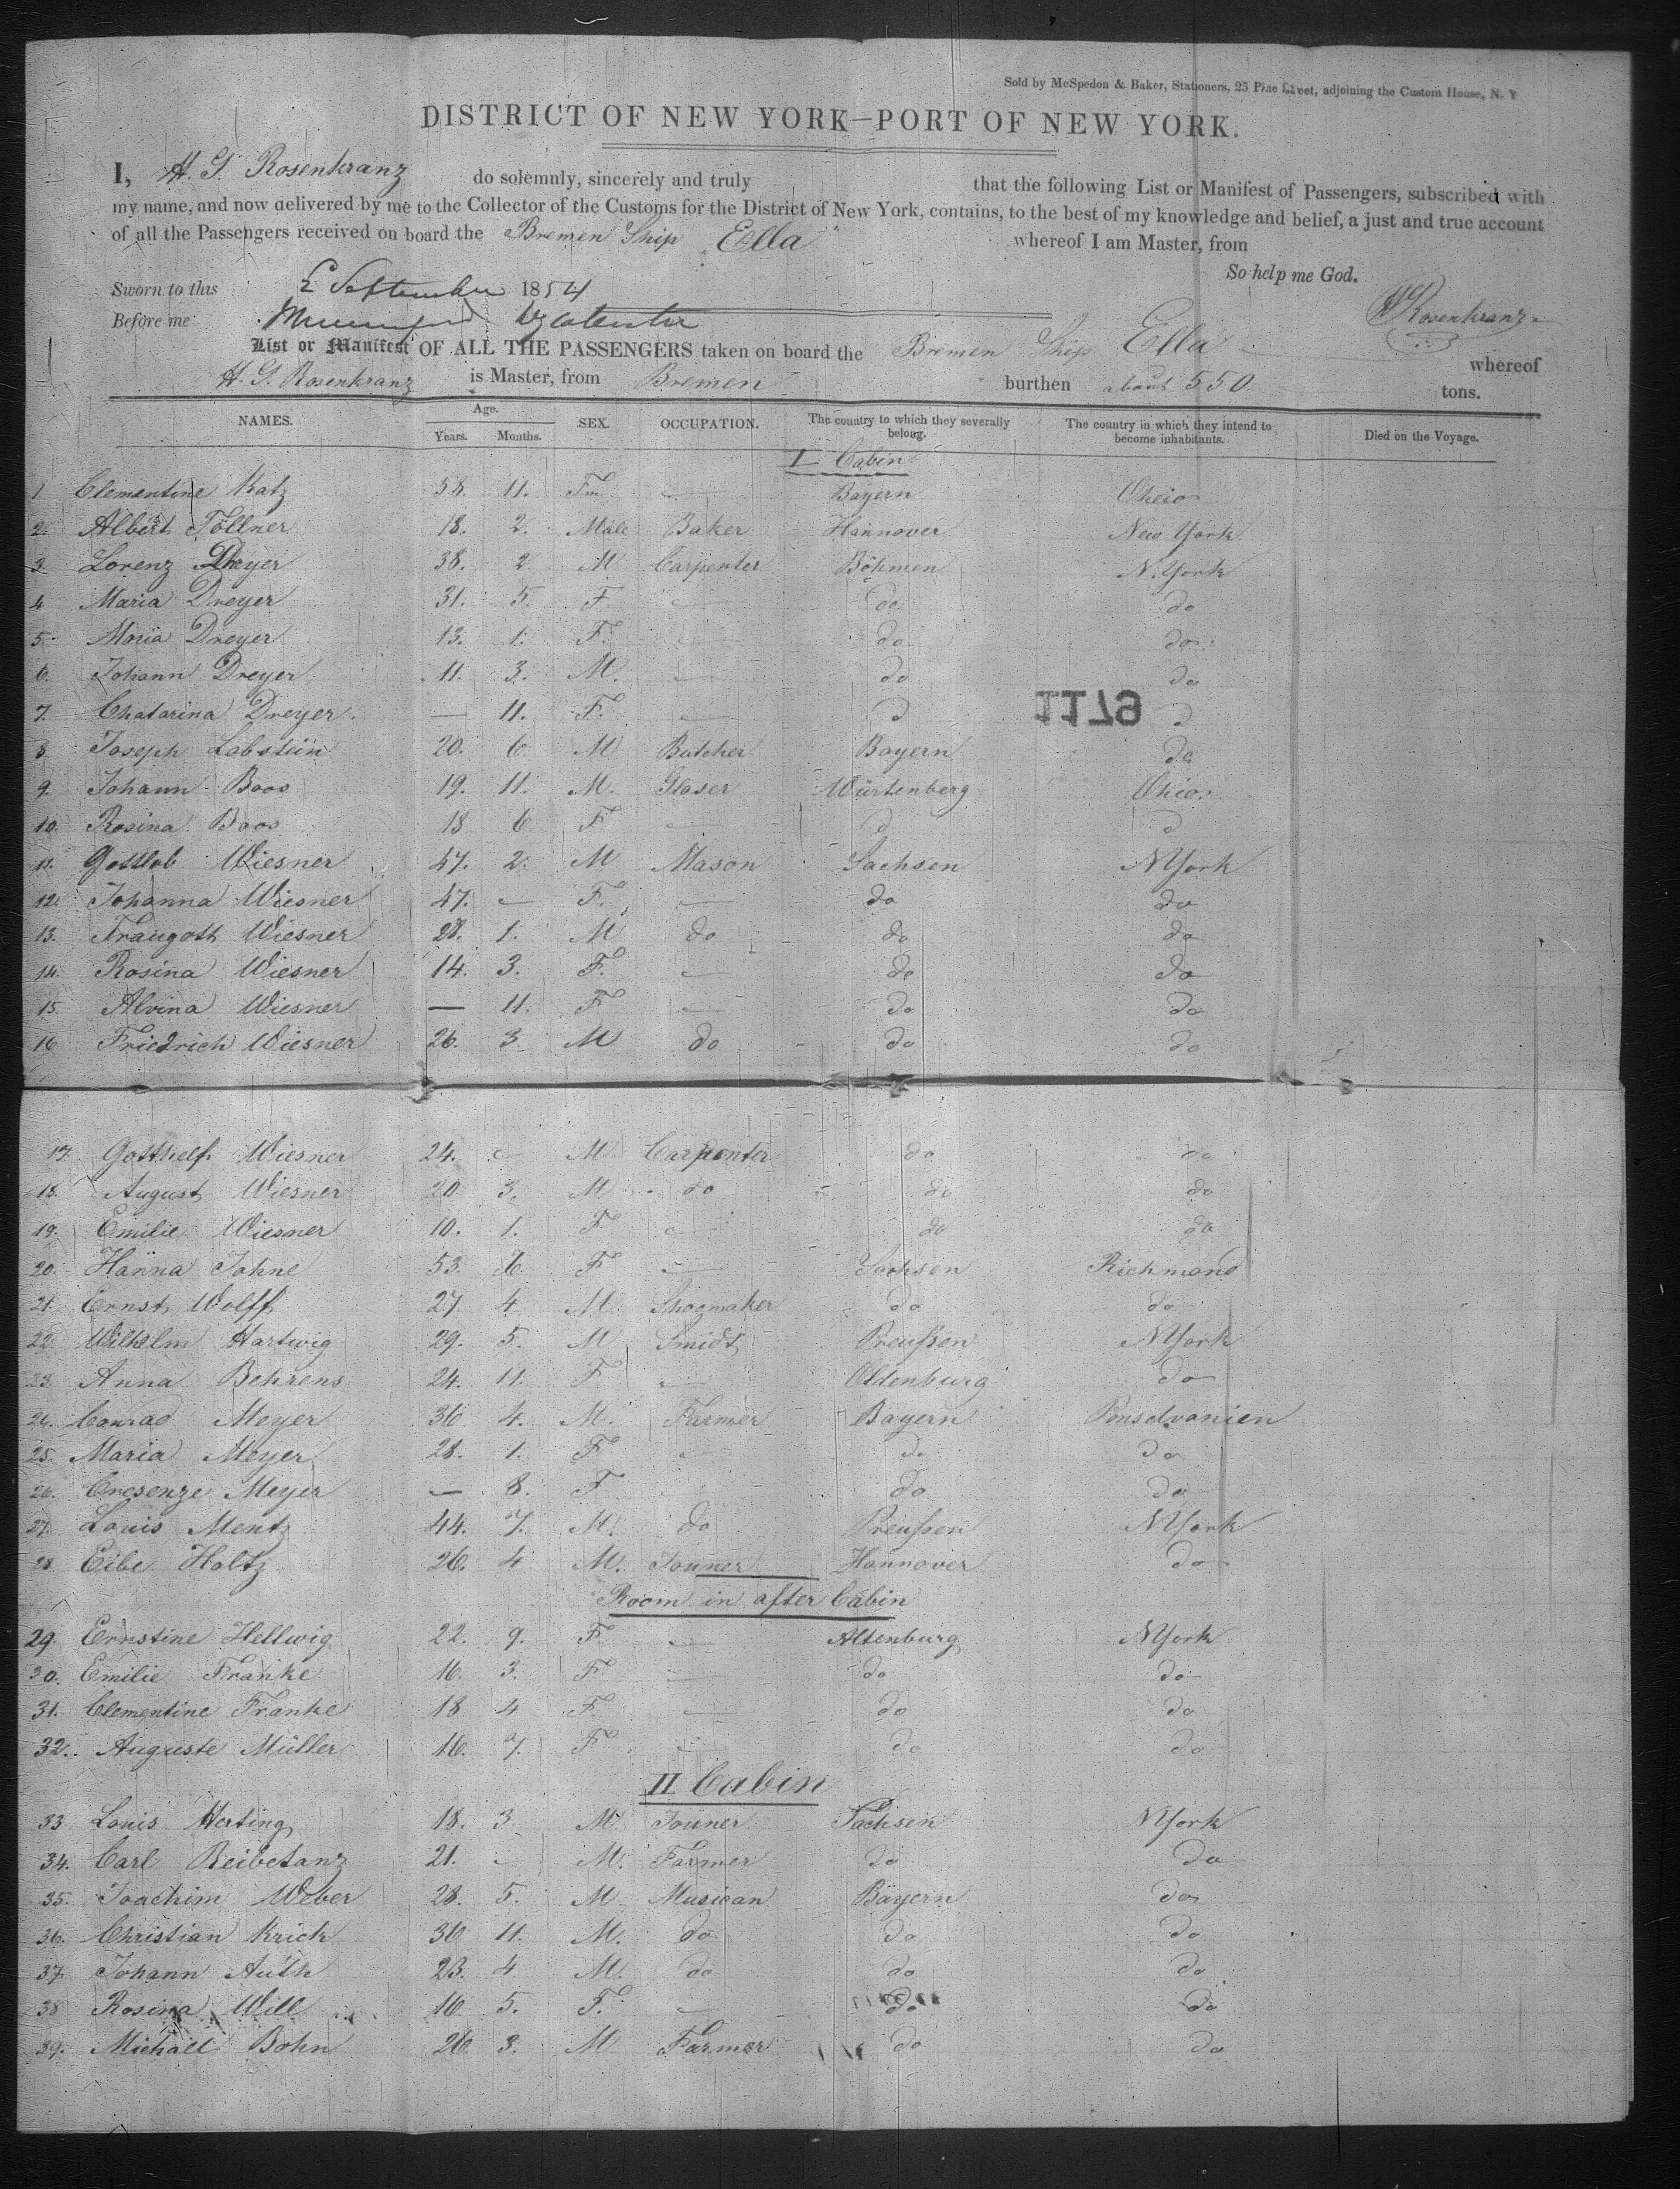 Sold by McSpedon & Baker, Stationers, 25 Pine Street, adjoining the Custom House, N. Y
DISTRICT OF NEW YORK—PORT OF NEW YORK.
I, H. G. Rosenkranz do solemnly, sincerely and truly that the following List or Manifest of Passengers, subscribed with
my name, and now delivered by me to the Collector of the Customs for the District of New York, contains, to the best of my knowledge and belief, a just and true account
of all the Passengers received on board the Bremen Ship "Ella" whereof I am Master, from
So help me God.
Sworn to this 2 September 1854
Before me
HGRosenkranz
List or Manifest OF ALL THE PASSENGERS taken on board the Bremen Ship Ella whereof
H. G. Rosenkranz is Master, from Bremen burthen about 550 tons.
NAMES. Age. Years. Months. SEX. OCCUPATION. The country to which they severally belong. The country in which they intend to become inhabitants. Died on the Voyage.
I Cabin
1. Clementine Katz 58. 11. Fm. — Bayern Oheio
2. Albert Töllner 18. 2. Male Baker Hannover New York
3. Lorenz Dreyer 38. 2 M Carpenter Böhmen N.York
4 Maria Dreyer 31. 5. F — do do
5. Maria Dreyer 13. 1. F. — do do
6. Johann Dreyer 11. 3. M. — do do
1179
7. Chatarina Dreyer. — 11. F. — do do
8 Joseph Lobstein 20. 6 M Butcher Bayern do
9. Johann Boos 19. 11. M. Glaser Würtenberg Ohio
10. Rosina Boos 18 6 F — do do
11. Gottlob Wiesner 47. 2. M Mason Sachsen NYork
12. Johanna Wiesner 47. — F. — do do
13. Traugott Wiesner 28. 1. M do do do
14. Rosina Wiesner 14. 3. F. — do do
15. Alvina Wiesner — 11. F — do do
16 Friedrich Wiesner 26. 3. M do do do
17. Gotthelf Wiesner 24. — M Carpenter do do
18. August Wiesner 20 3. M do do do
19. Emilie Wiesner 10. 1. F — do do
20. Hanna Johne 53. 6 F — Sachsen Richmond
21. Ernst Wolff 27 4 M. Shoemaker do do
22. Wilhelm Hartwig 29. 5. M Smidt Preußen NYork
23. Anna Behrens 24. 11. F — Oldenburg do
24. Conrad Meyer 36 4. M. Farmer Bayern Penselvanien
25. Maria Meyer 28. 1. F — do do
26. Cresenze Meyer — 8. F do do
27. Louis Mentz 44. 7. M. do Preußen NYork
28 Eibe Holtz 26. 4 M. Jouner Hannover do
Room in after Cabin
29. Ernstine Hellwig 22. 9. F — Altenburg NYork
30. Emilie Franke 16. 3. F — do do
31. Clementine Franke 18 4 F — do do
32. Auguste Müller 16. 7. F — do do
II Cabin
33. Louis Herting 18. 3. M. Jouner Sachsen NYork
34. Carl Beibetanz 21. — M. Farmer do do
35. Joachim Weber 28. 5. M Musican Bayern do
36. Christian Krick 36 11. M. do do do
37 Johann Auth 23. 4 M. do do do
38 Rosina Will 16 5. F. — do do
39. Michael Bohn 26 3. M Farmer do do